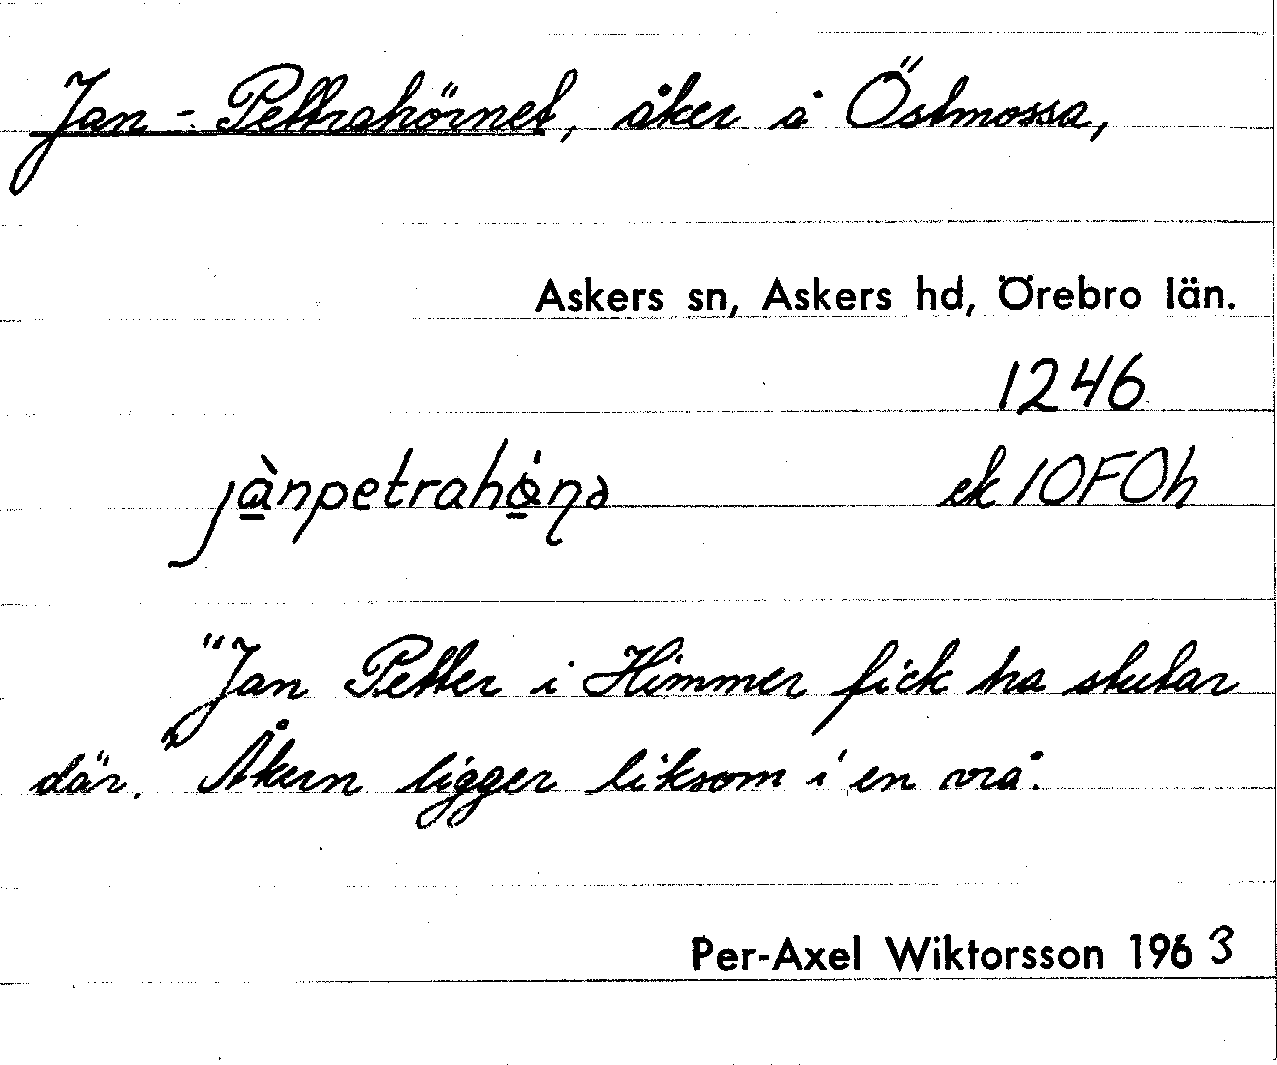 Jan-Pettrahörnet, åker å Östmossa,
Askers sn, Askers hd, Örebro län.
1246
jànpetrahǿṇə ek 10F0h
"Jan Petter i Himmer fick ha stutar
där." Åkern ligger liksom i en vrå.
Per-Axel Wiktorsson 1963